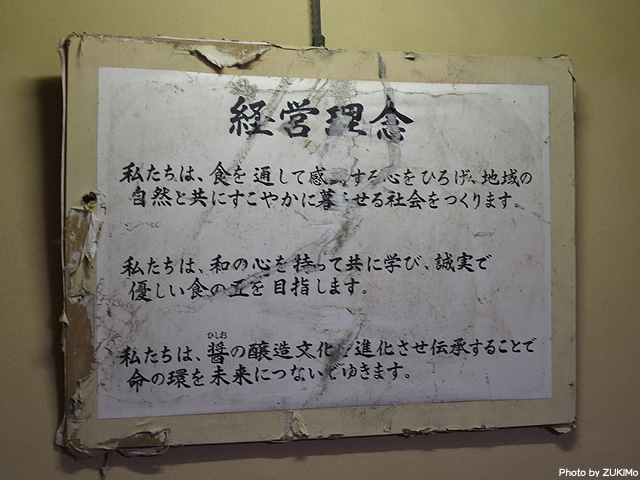 経営理念
私たちは、食を通して感する心をひろげ、地域の
自然と共にすこやかに暮せる社会をつくります。
私たちは、和の心を持って共に学び、誠実で
優しい食の匠を目指します。
ひしお
私たちは、醤の醸造文化進化させ伝承することで
命の環を未来につないでゆきます。
Photo by ZUKIMo